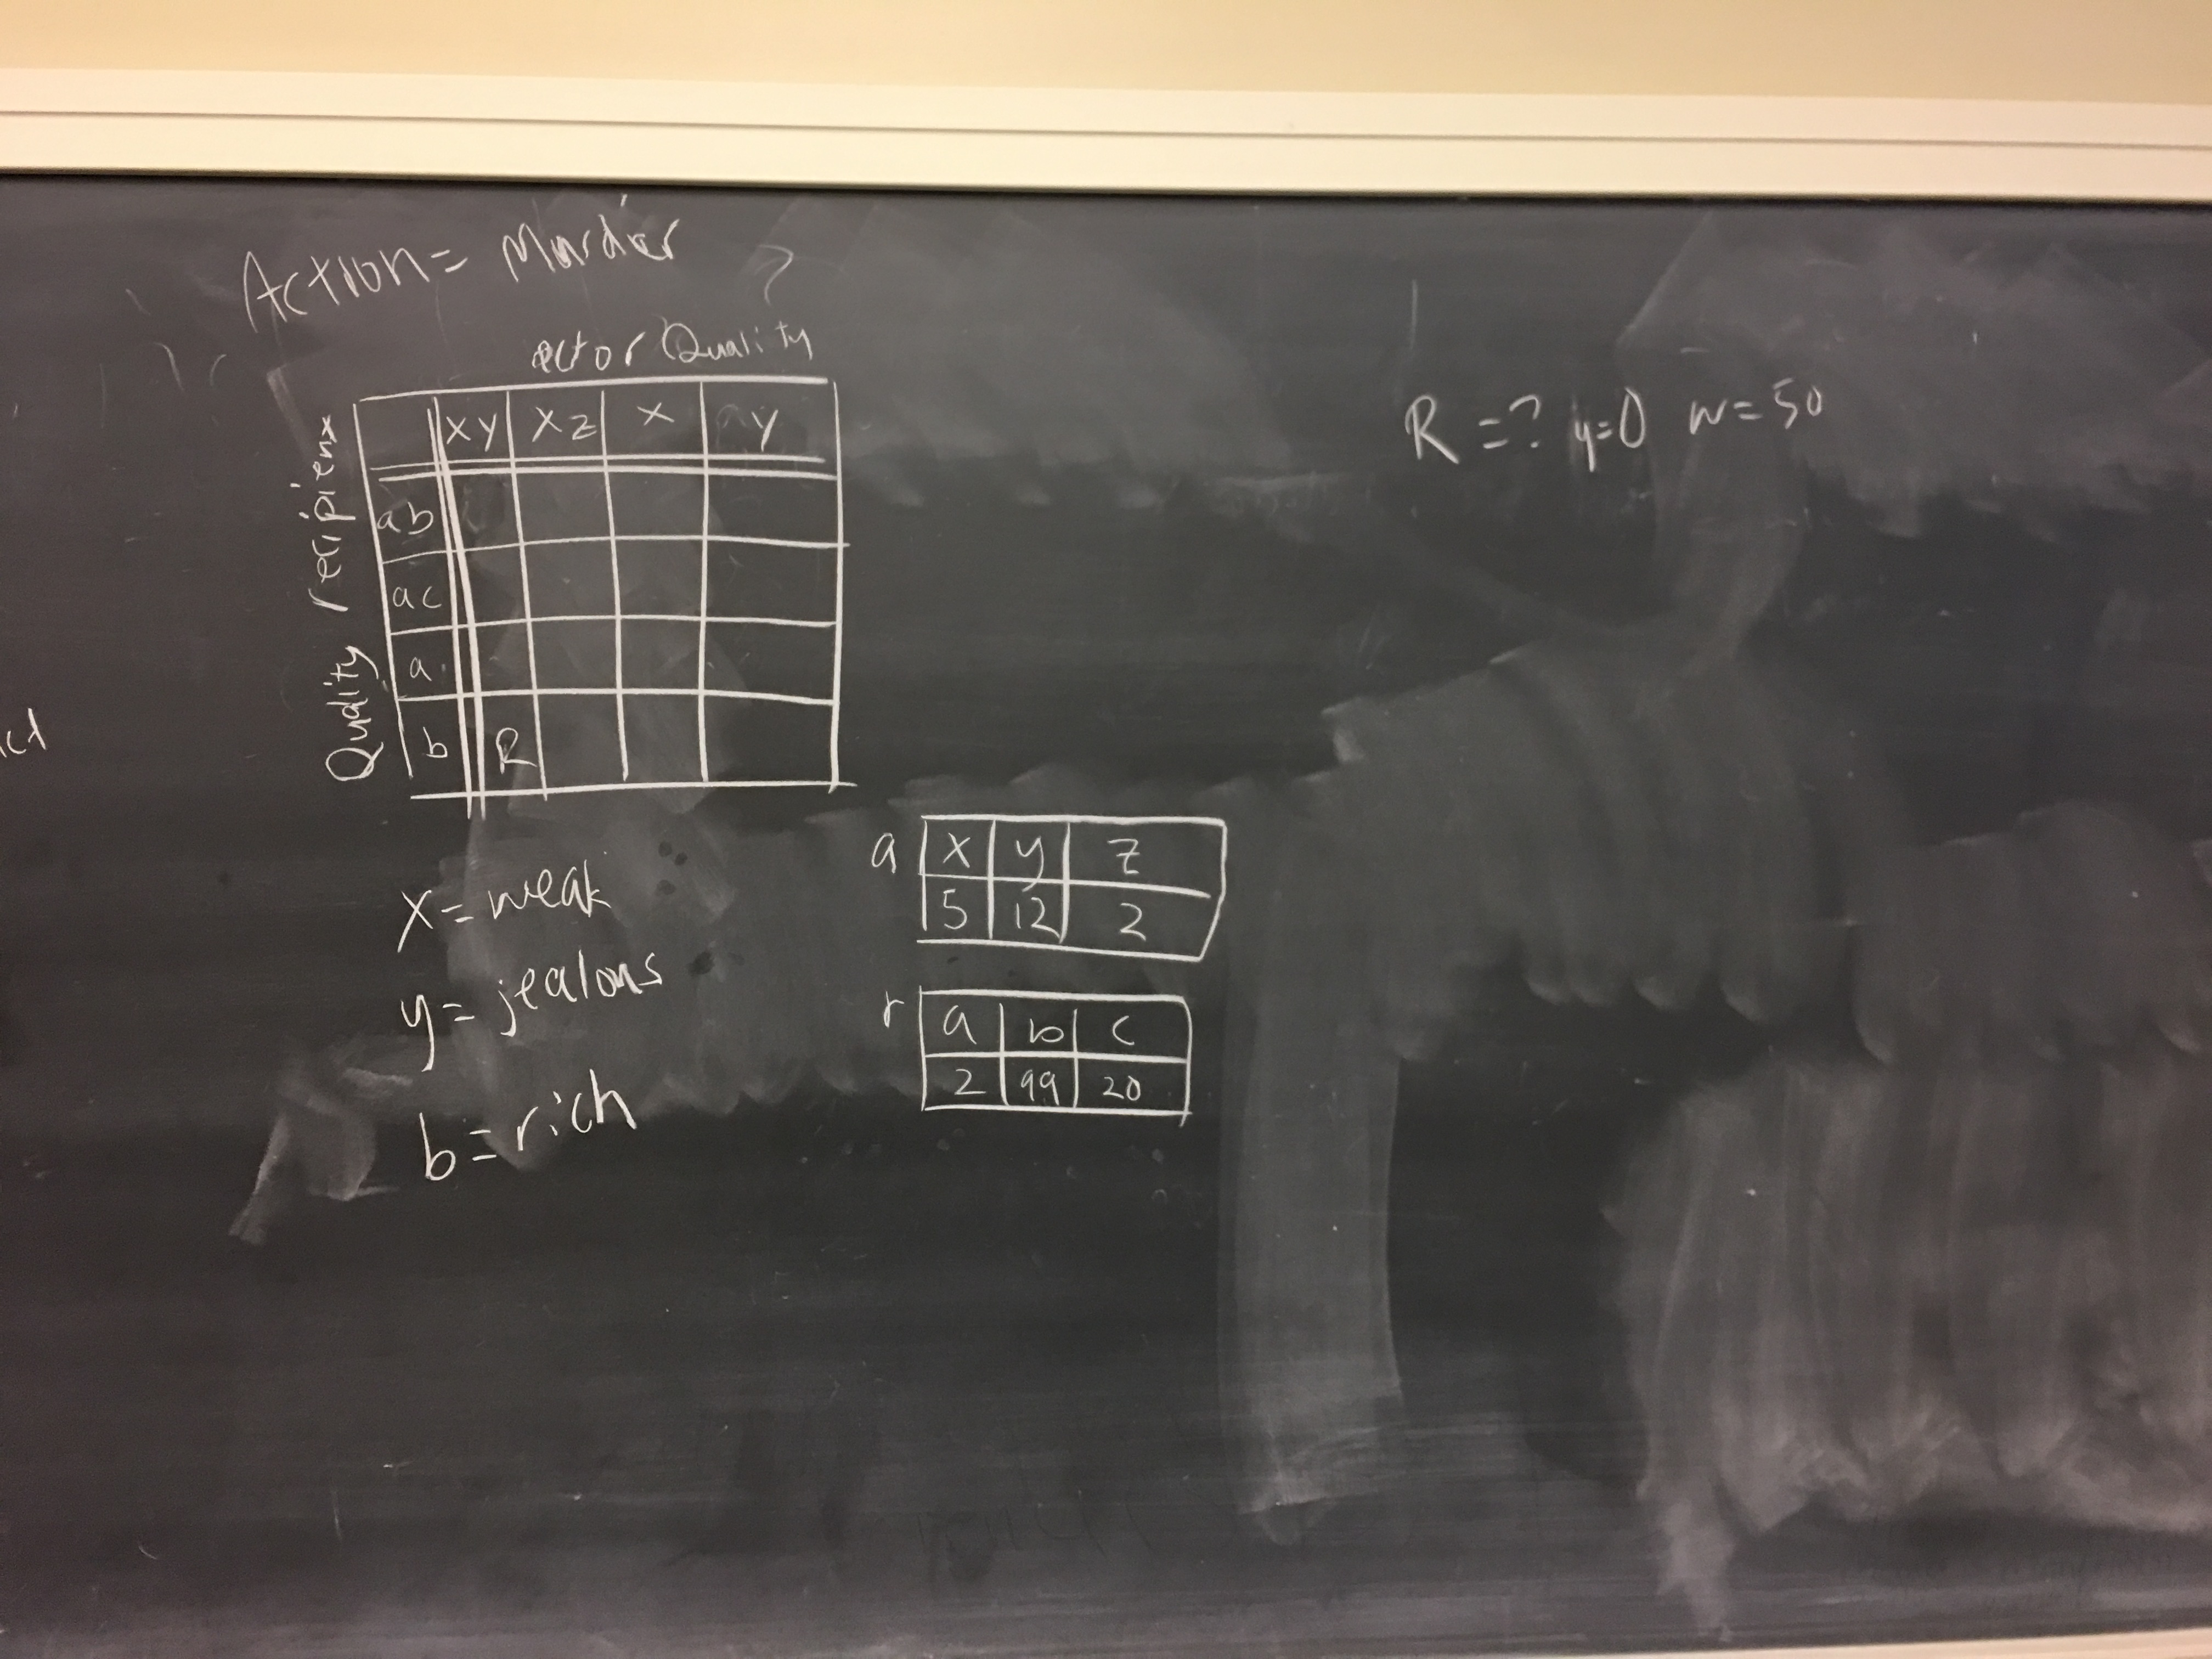 Action = Murder
actor Quality
Quality recipient
xy xz x y
ab
ac
a
b R
x = weak
y = jealous
b = rich
a x y z
5 12 2
r a b c
2 99 20
R = ? y=0 w=50